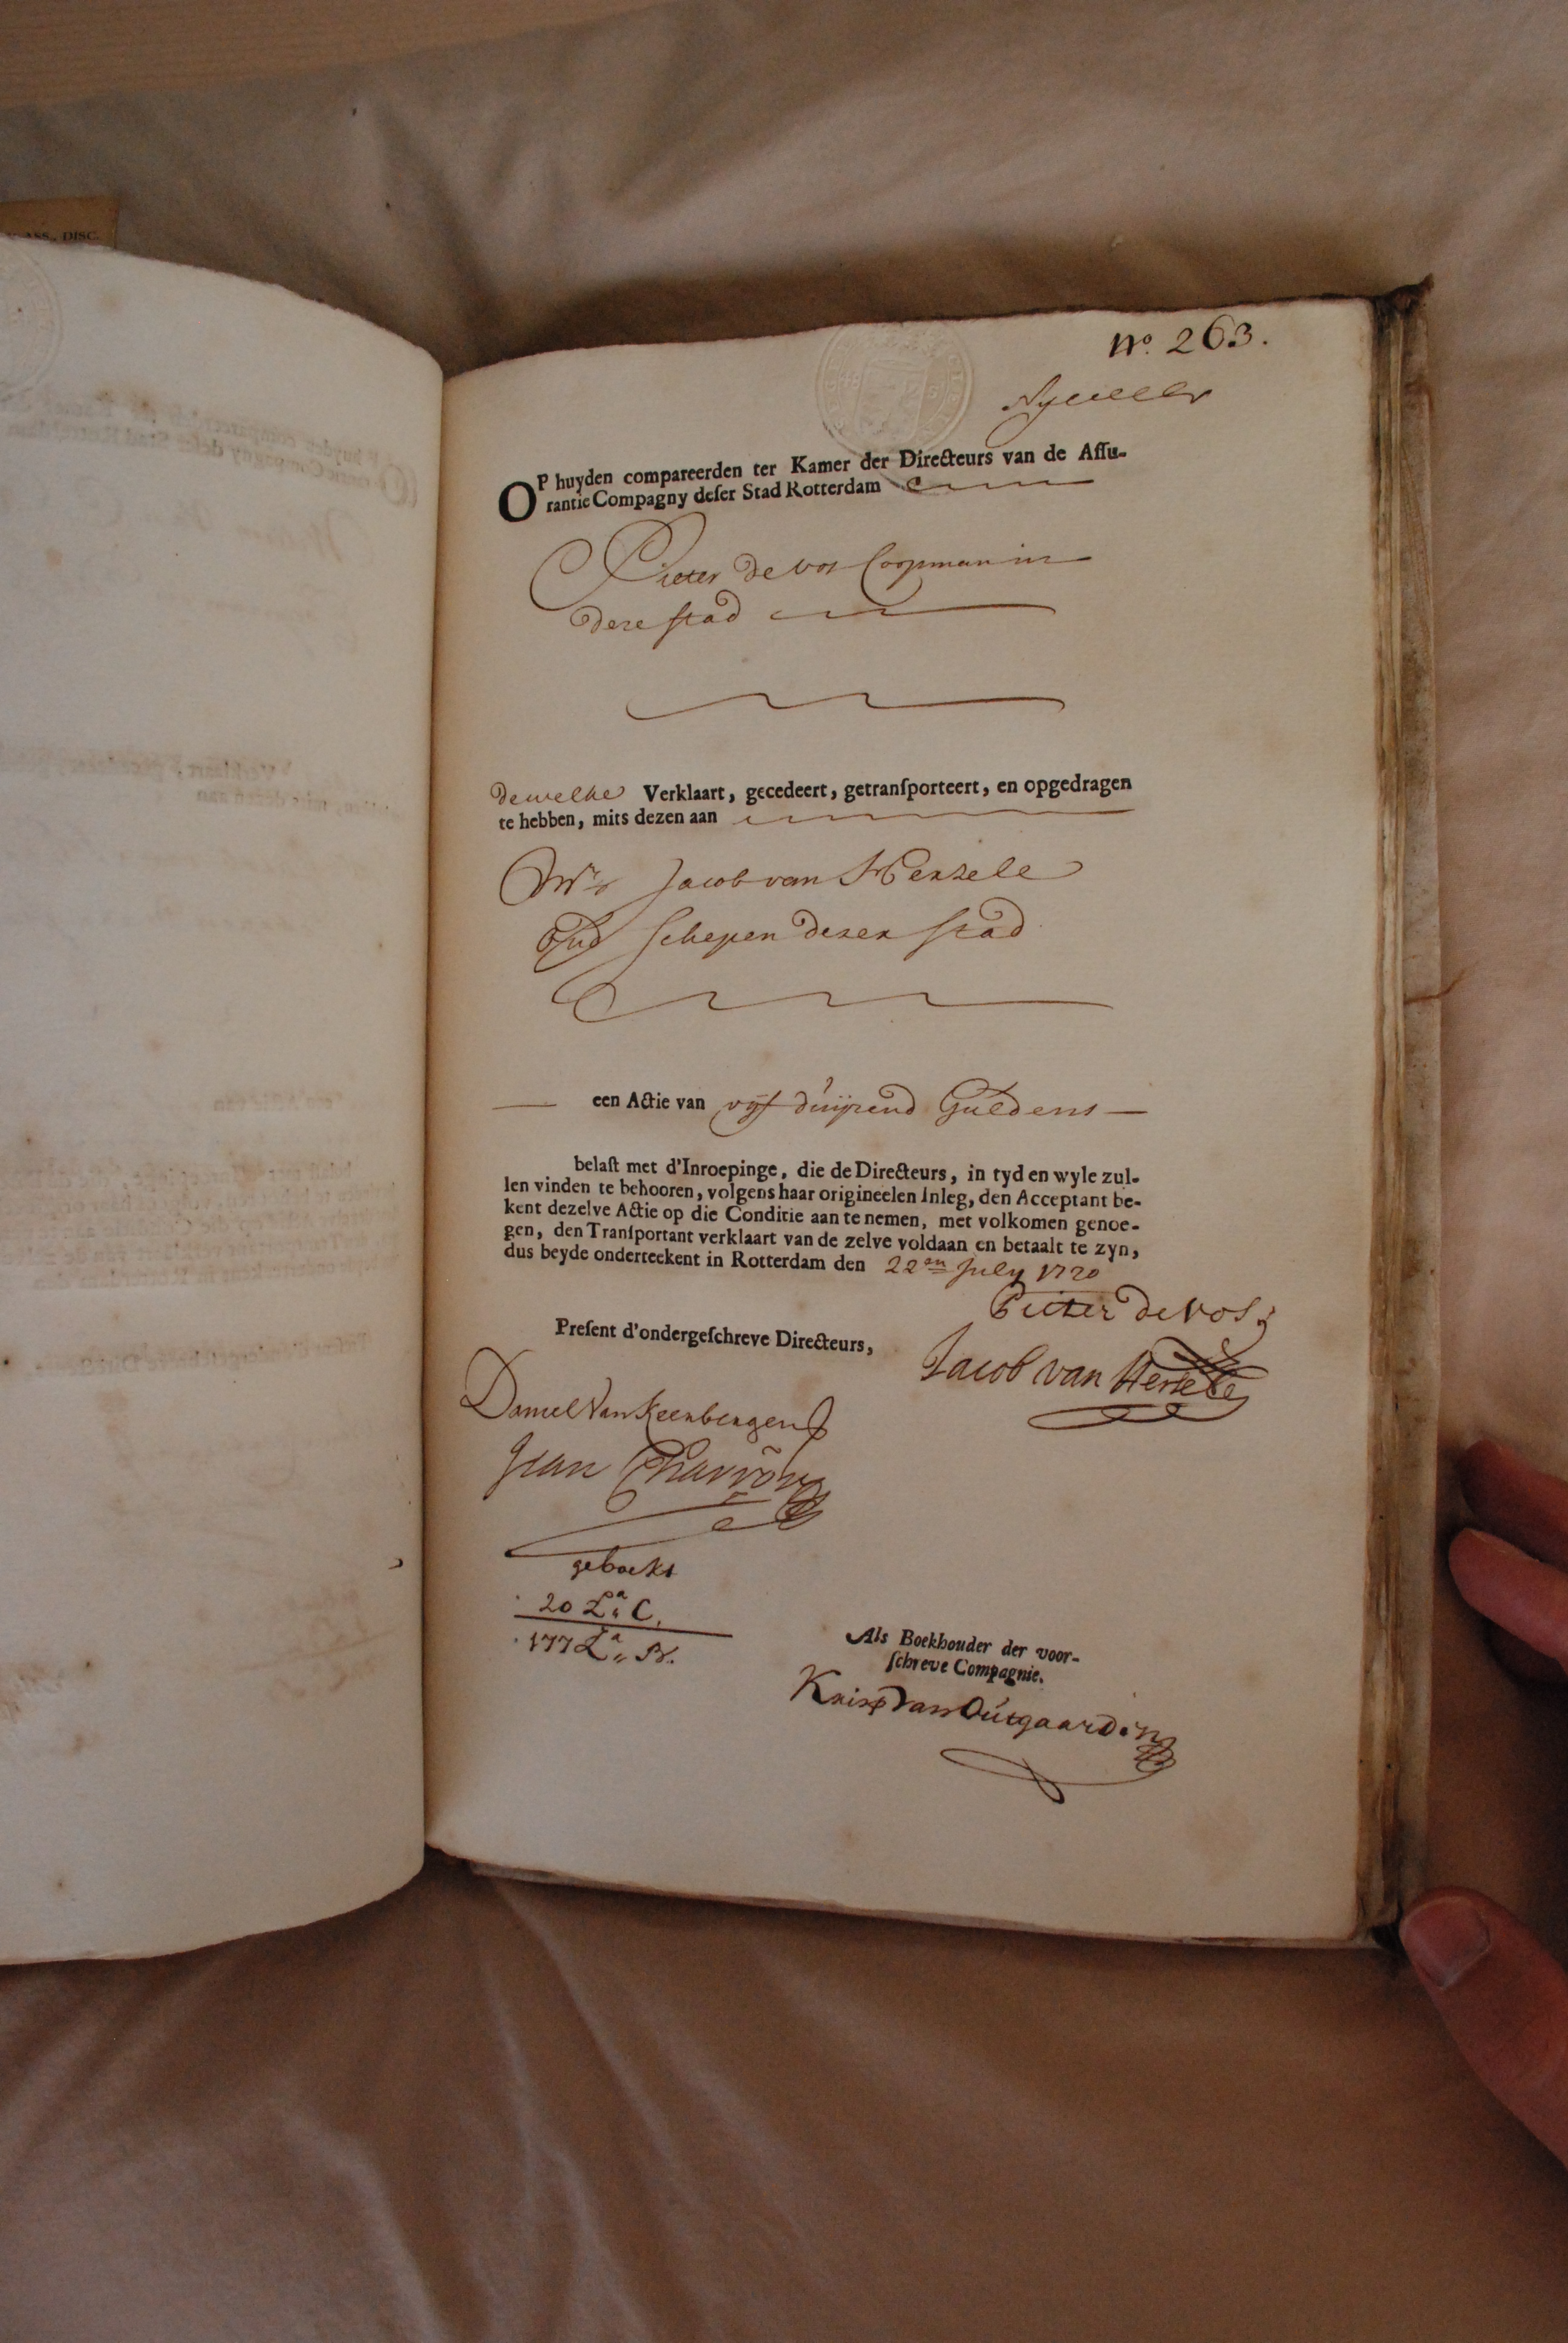 ASS., DISC.
No. 263.
OP huyden compareerden ter Kamer der Directeurs van de Aſſu-
rantie Compagny deſer Stad Rotterdam
Pieter de vos Coopman in
deze stad
dewelke Verklaart, gecedeert, getranſporteert, en opgedragen
te hebben, mits dezen aan
Mr. Jacob van Herzele
Oud Schepen dezer stad
een Actie van vijf duijzend Guldens
belaſt met d'Inroepinge, die de Directeurs, in tyd en wyle zul-
len vinden te behooren, volgens haar origineelen Inleg, den Acceptant be-
kent dezelve Actie op die Conditie aan te nemen, met volkomen genoe-
gen, den Tranſportant verklaart van de zelve voldaan en betaalt te zyn,
dus beyde onderteekent in Rotterdam den 22en July 1720
Pieter de Vos
Preſent d'ondergeſchreve Directeurs,
Jacob van Herzele
Daniel Van Keerbergen
Jean Charron
geboekt
20 La. C.
177 La.
Als Boekhouder der voor-
ſchreve Compagnie.
Van Outgaarden